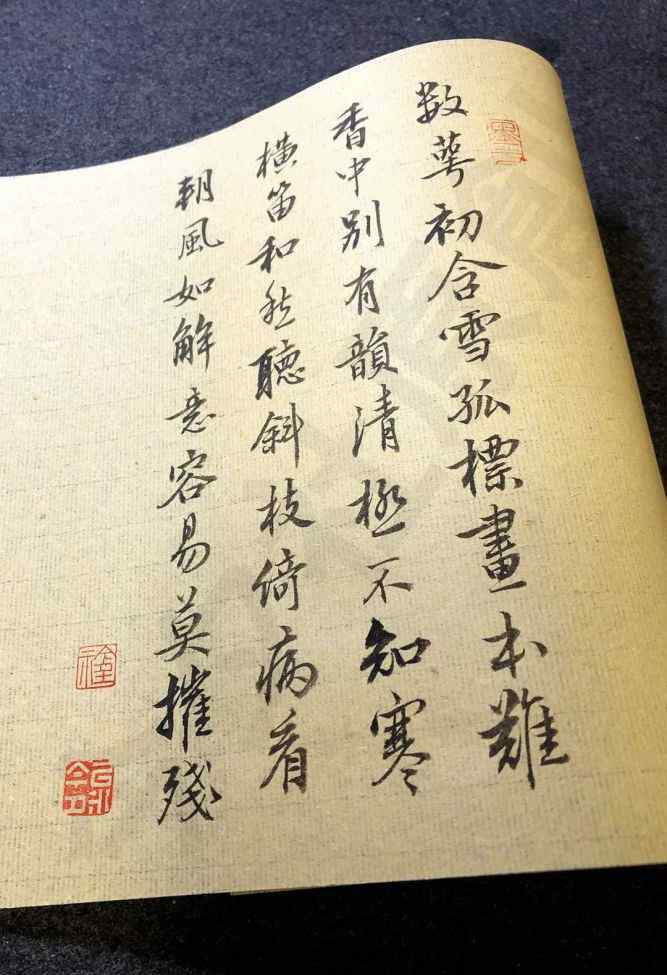 数萼初含雪孤標畫本難
香中别有韻清極不知寒
橫笛和愁聽斜枝倚病看
朝風如解意容易莫摧殘